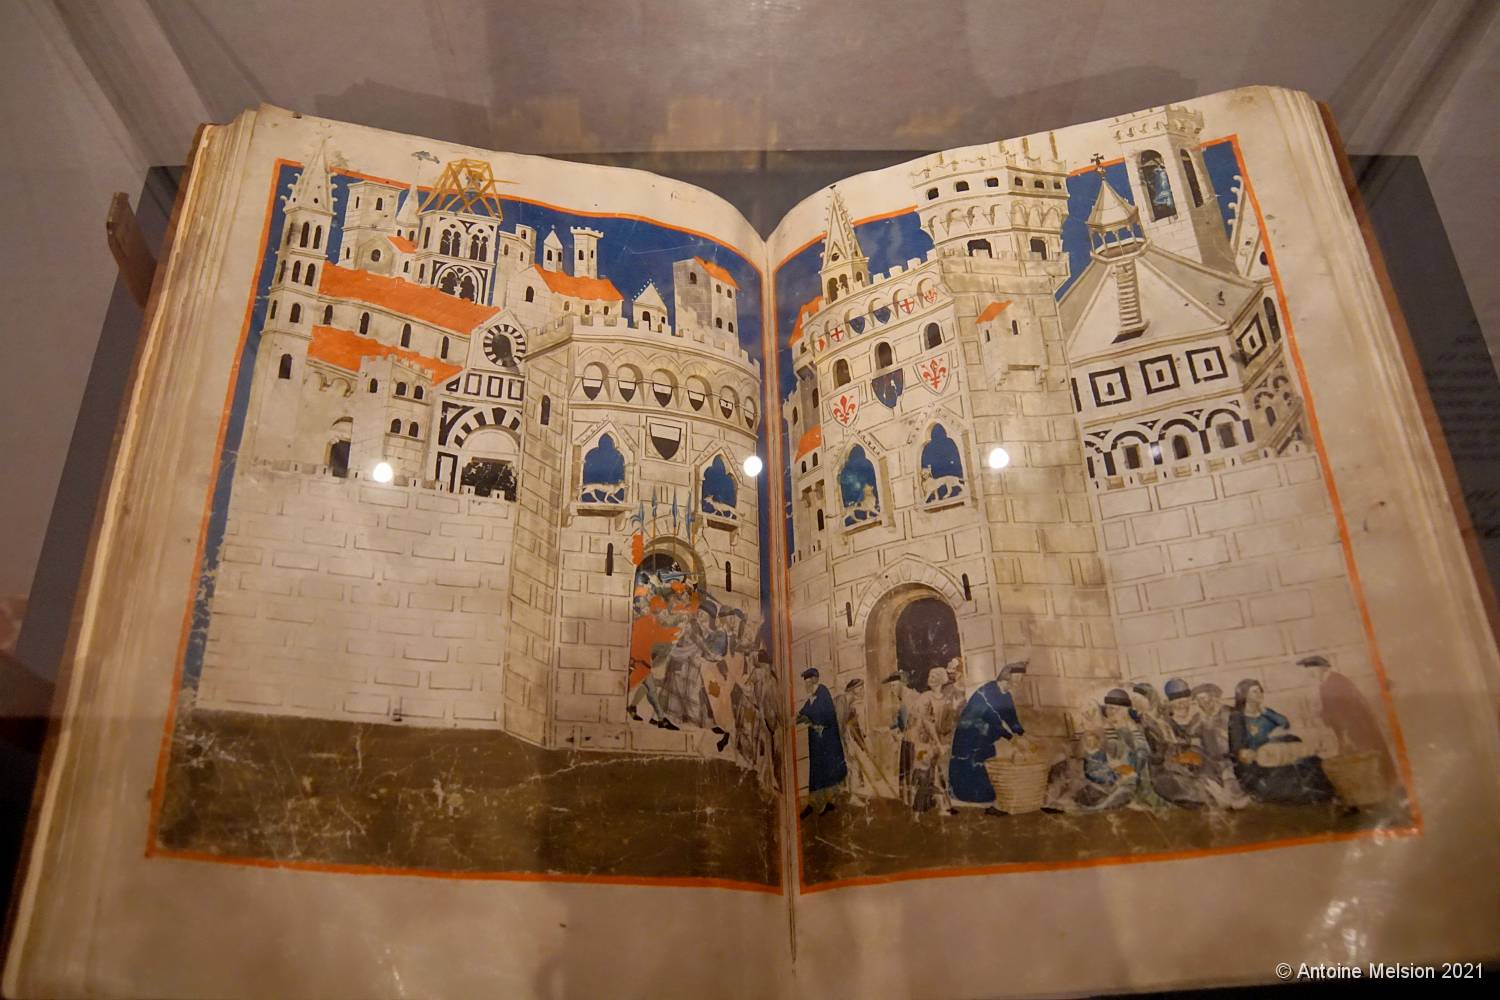 © Antoine Melsion 2021